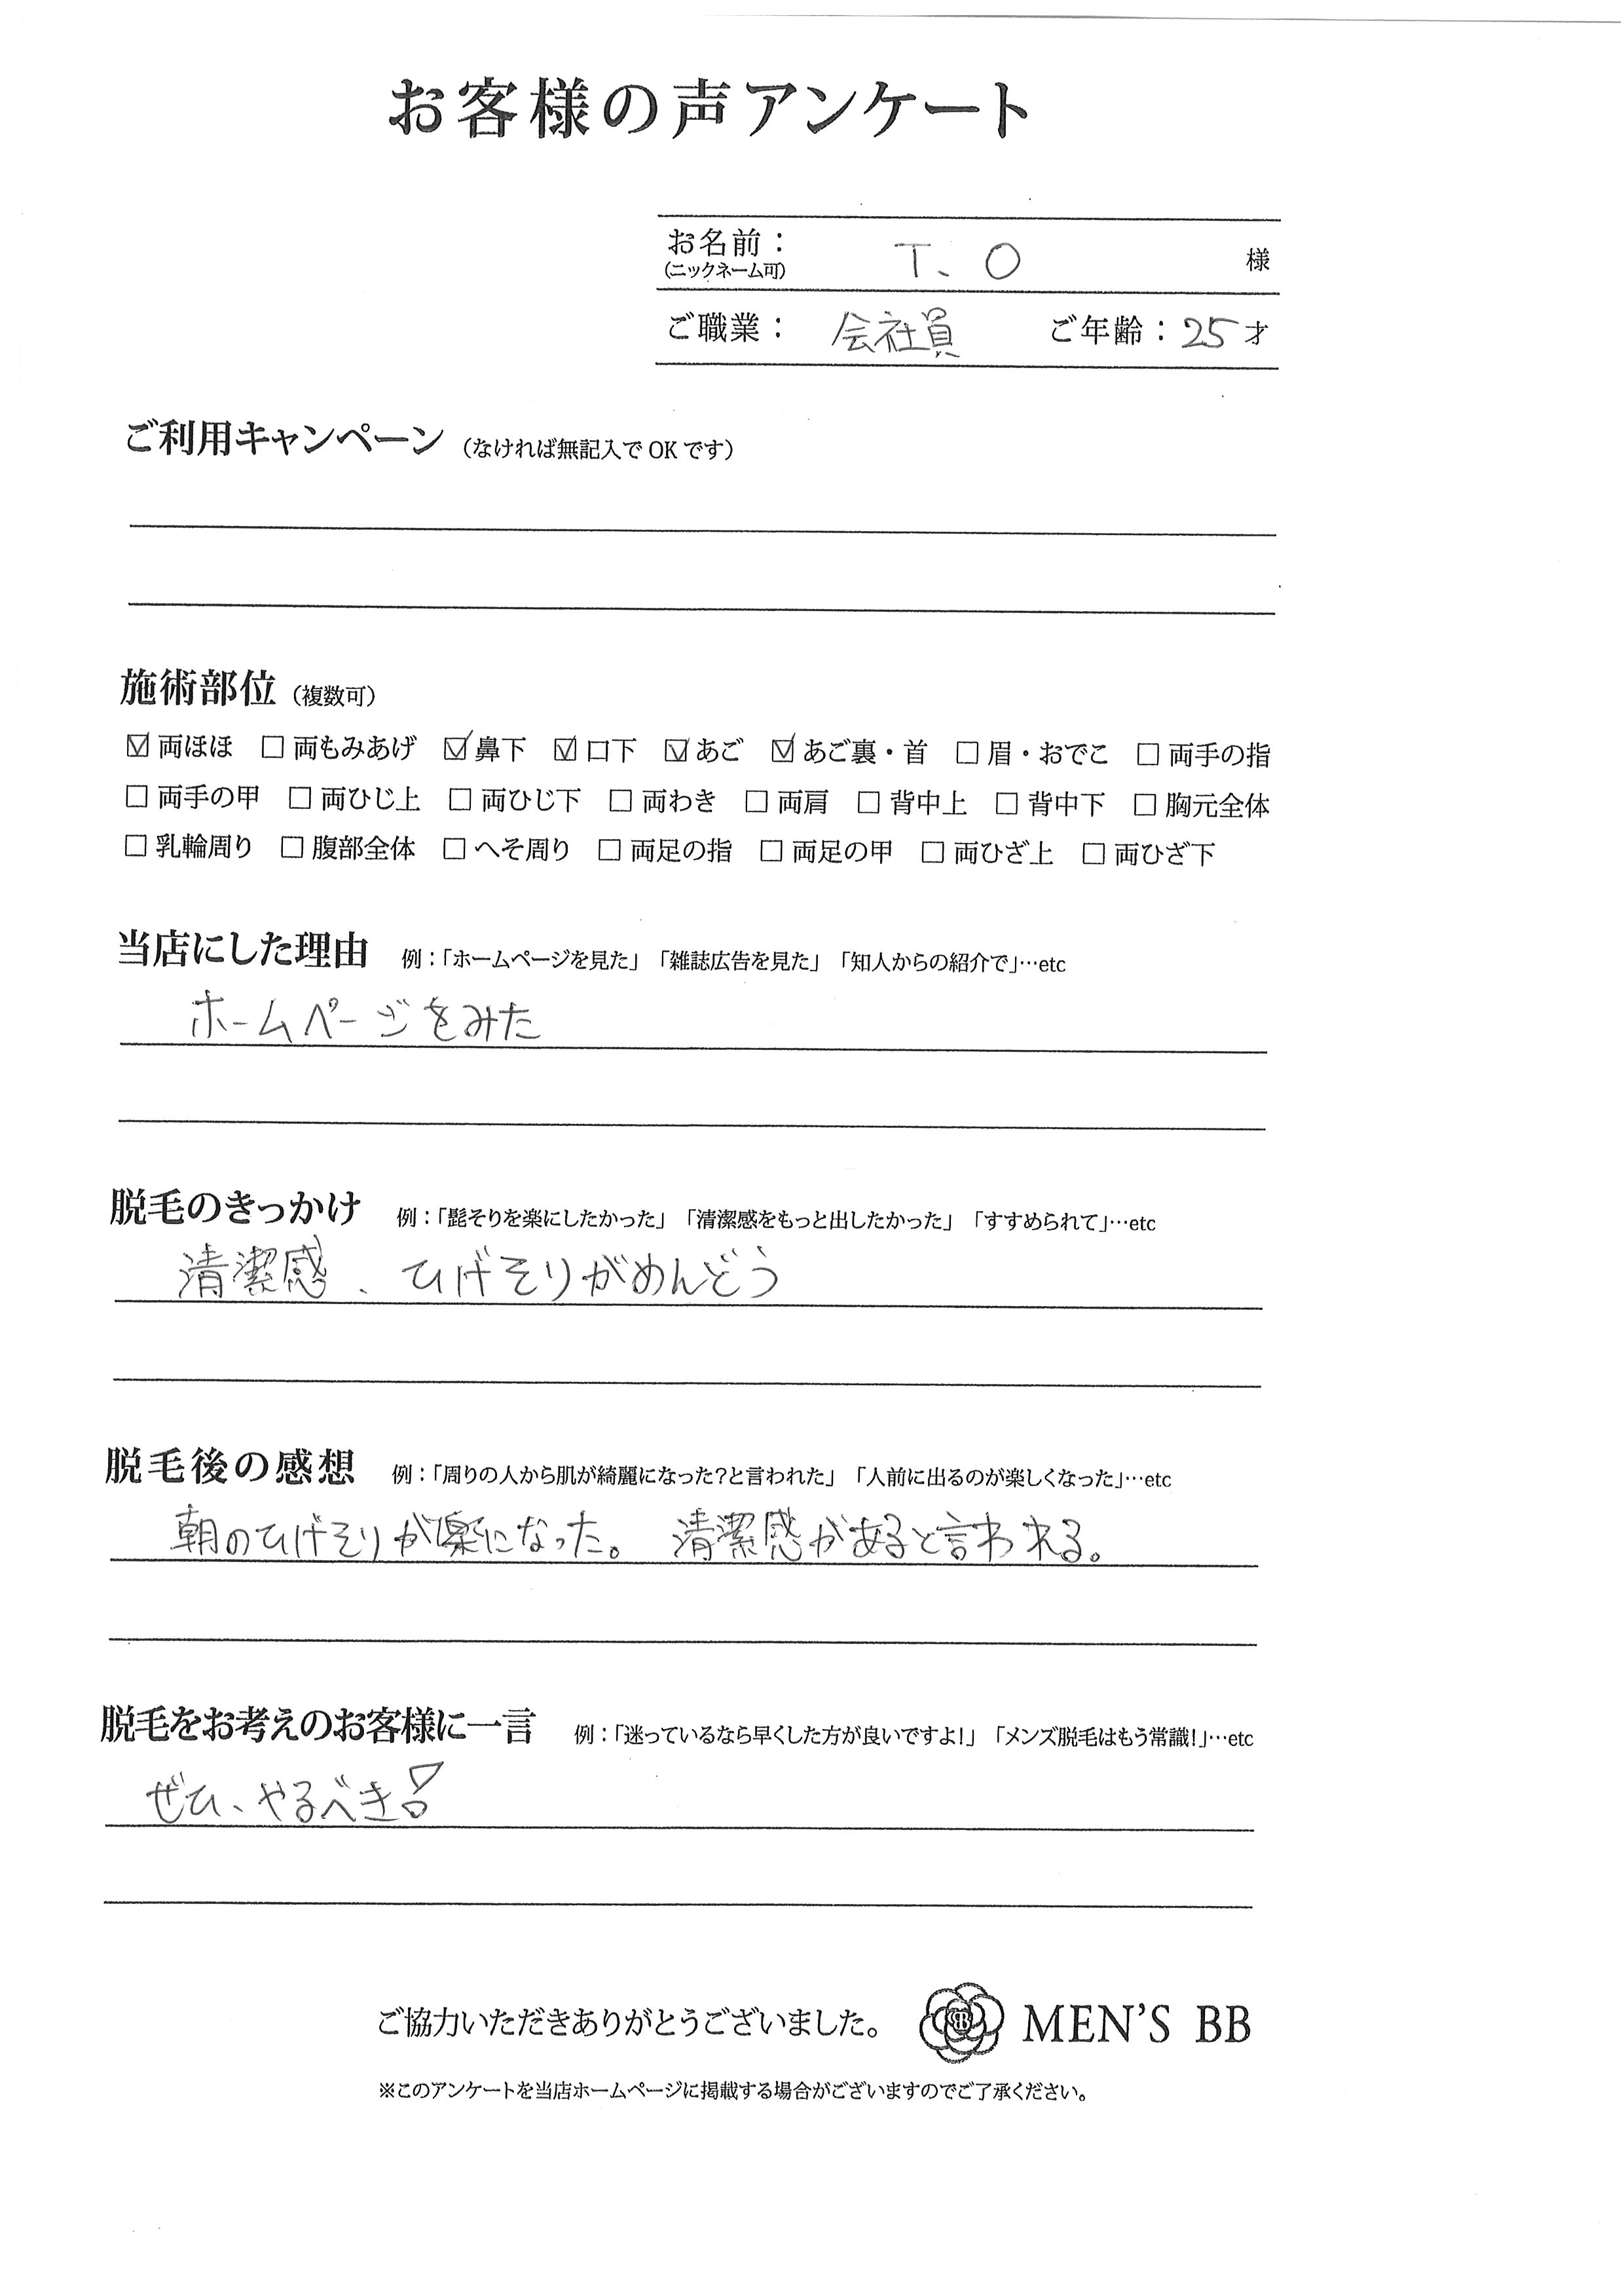 お客様の声アンケート
お名前： T、O 様
（ニックネーム可）
ご職業： 会社員 ご年齢：25才
ご利用キャンペーン （なければ無記入でOKです）
施術部位 （複数可）
☑ 両ほほ □ 両もみあげ ☑ 鼻下 ☑ 口下 ☑ あご ☑ あご裏・首 □ 眉・おでこ □ 両手の指
□ 両手の甲 □ 両ひじ上 □ 両ひじ下 □ 両わき □ 両肩 □ 背中上 □ 背中下 □ 胸元全体
□ 乳輪周り □ 腹部全体 □ へそ周り □ 両足の指 □ 両足の甲 □ 両ひざ上 □ 両ひざ下
当店にした理由 例：「ホームページを見た」「雑誌広告を見た」「知人からの紹介で」…etc
ホームページをみた
脱毛のきっかけ 例：「髭そりを楽にしたかった」「清潔感をもっと出したかった」「すすめられて」…etc
清潔感、ひげそりがめんどう
脱毛後の感想 例：「周りの人から肌が綺麗になった？と言われた」「人前に出るのが楽しくなった」…etc
朝のひげそりが楽になった。 清潔感があると言われる。
脱毛をお考えのお客様に一言 例：「迷っているなら早くした方が良いですよ！」「メンズ脱毛はもう常識！」…etc
ぜひ、やるべき！
ご協力いただきありがとうございました。 MEN'S BB
※このアンケートを当店ホームページに掲載する場合がございますのでご了承ください。